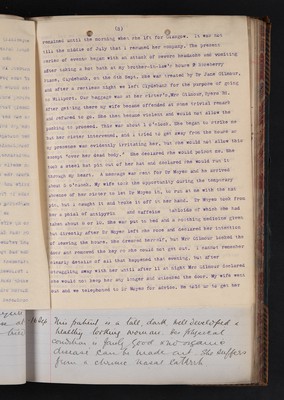 (2)
remained until the morning when she left for Glasgow. It was not
till the middle of July that I resumed her company. The present
series of events began with an attack of severe headache and vomiting
after taking a hot bath at my brother-in-law's house 8 Rosebery
Place, Clydebank, on the 6th Sept. She was treated by Dr Jack Gilmour,
and after a restless night we left Clydebank for the purpose of going
to Hillport. Her baggage was at her sister's, Mrs Gilmour,
after getting there my wife became offended at some trivial remark
and refused to go. She then became violent and would not allow the
packing to proceed. This was about 1 o'clock. She began to strike me
but her sister intervened, and I tried to get away from the house as
my presence was evidently irritating her, but she would not allow this
except "over her dead body." She declared she would poison me. She
had a steel hat pin out of her hat and declared she would run it
through my heart. A message was sent for Dr Mayes and he arrived
about 5 o'clock. My wife took the opportunity during the temporary
absence of her sister to let Dr Mayes in, to run at me with the hat
pin, but I caught it and broke it off in her hand. Dr Mayes took from
her a phial of antipyrin and caffeine tabloids of which she had
taken about 8 or 10. She was put to bed and a soothing medicine given
but directly after Dr Mayes left she rose and declared her intention
of leaving the house. She dressed herself, but Mrs Gilmour locked the
doors and removed the key so she could not get out. I cannot remember
clearly details of all that happened that evening, but after
struggling away with her until after 11 at night Mrs Gilmour declared
she would not keep her any longer and unlocked the door. My wife went
out and we telephoned to Dr Mayes for advice. He told us to get her
16 Sep. This patient is a tall, dark well developed &
healthy looking woman. Her physical
condition is fairly good & no organic
disease can be made out. She suffers
from a chronic nasal catarrh